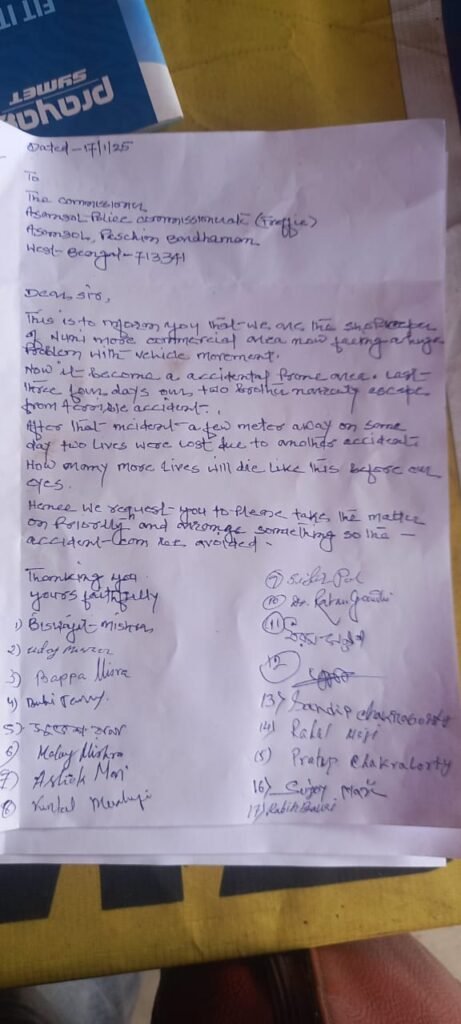 FIT IT
prayag
SYMET
Dated - 17/1/25
To
The commissioner
Asansol Police commissionerate (Traffic)
Asansol, Paschim Bardhaman
West-Bengal - 713341
Dear sir,
This is to inform you that we are the shopkeeper
of more commercial area now facing a huge
Problem with vehicle movement.
Now it become a accidental Prone area. Last
three four days our two brother narrowly escape
from terrible accident.
After that incident a few meter away on same
day two lives were lost due to another accident.
How many more lives will die like this before our
eyes.
Hence we request you to Please take the matter
on Priority and arrange something so the -
accident can be avoided.
Thanking you
yours faithfully
1) Biswajit Mishra
2) Uday
3) Bappa Misra
4)
5)
6) Malay Mishra
7) Ashish Maji
8) Kuntal
9) Pal
10) Dr. Ratan
11)
12
13) Sandip Chakraborty
14) Rahul Maji
15) Pratap Chakraborty
16) Maji
17) Rabin Bauri